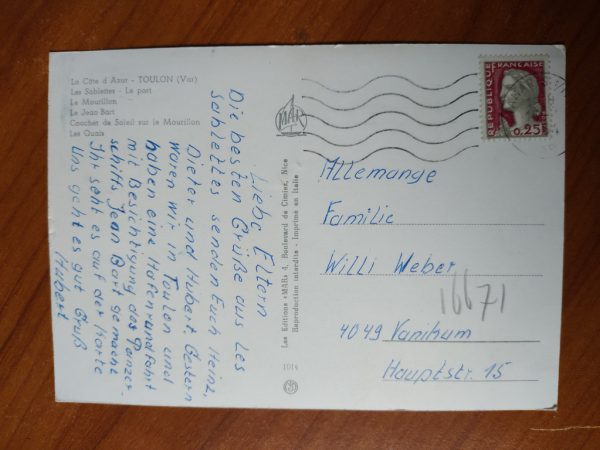 La Côte d'Azur - TOULON (Var)
Les Sablettes - Le port
Le Mourillon
Le Jean Bart
Coucher de Soleil sur le Mourillon
Les Quais
Liebe Eltern
Die besten Grüße aus Les
Sablettes senden Euch Heinz,
Dieter und Hubert. Gestern
waren wir in Toulon und
haben eine Hafenrundfahrt
mit Besichtigung des Panzer-
schiffs Jean Bart gemacht
Ihr seht es auf der Karte
Uns geht es gut Gruß
Hubert
MAR
Les Editions «MAR» 4, Boulevard de Cimiez, Nice
Reproduction interdite - Imprimé en Italie
1014
REPUBLIQUE FRANÇAISE
0,25
Allemange
Familie
Willi Weber
16671
4049 Vanikum
Hauptstr. 15